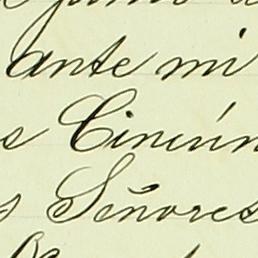 ante mi
s Cincún
s Señores